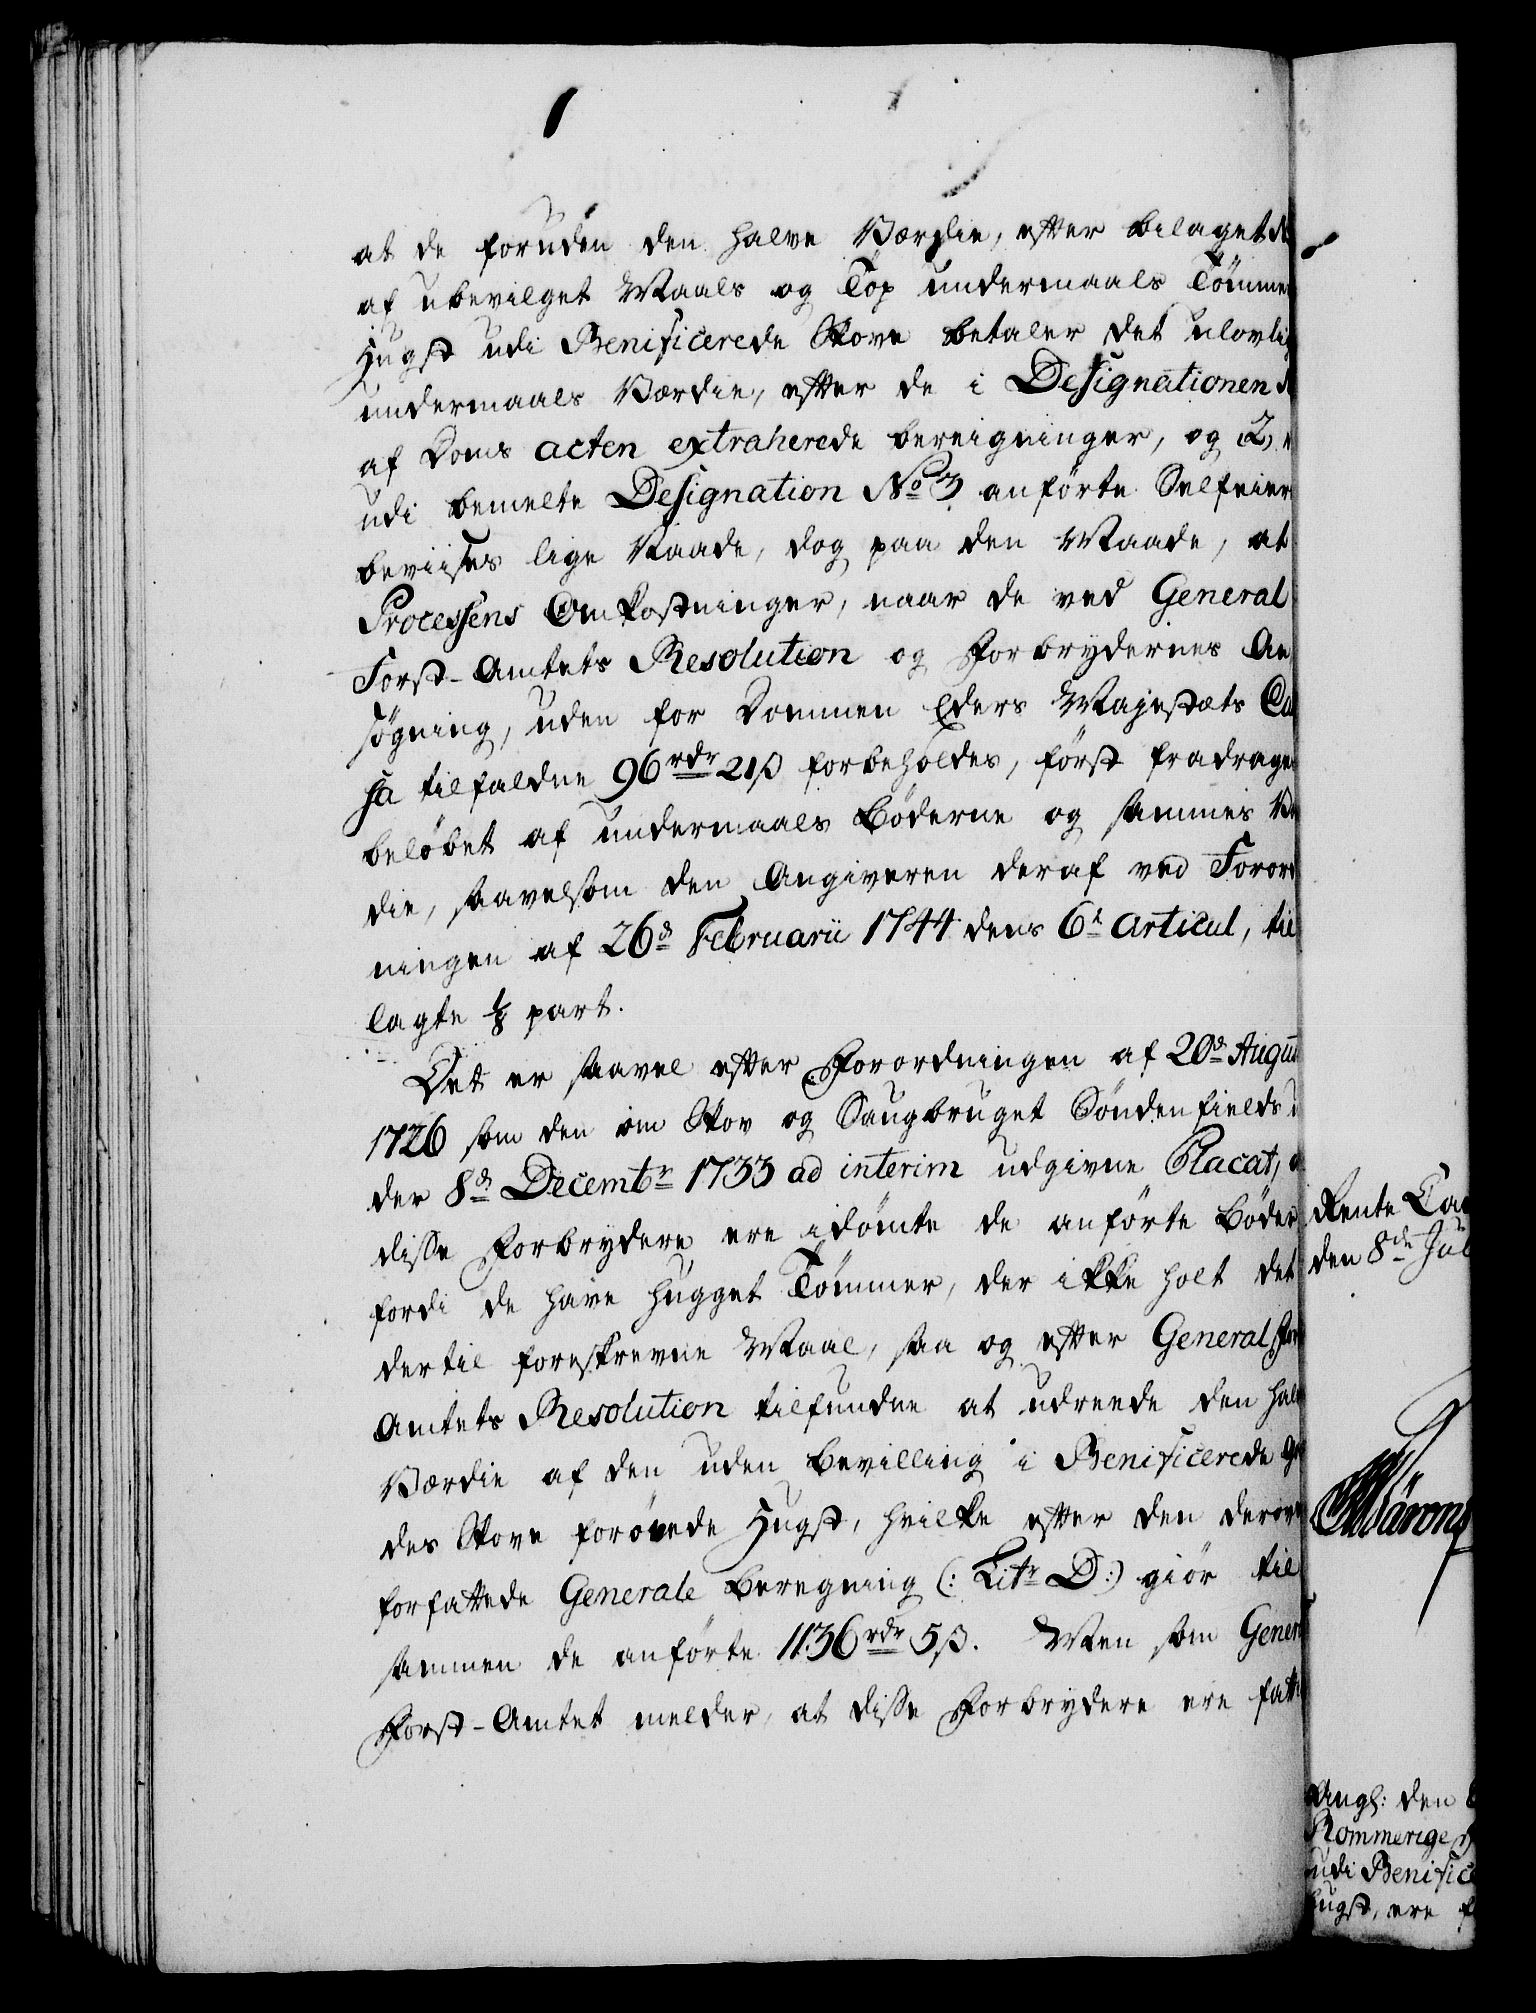 at de foruden den halve Værdie, efter bilaget
af ubevilget Maals og Top undermaals Tømmer
Hugst udi Benificerede Skove betaler det ulovlig
undermaals Værdie, efter de i Designationen
af Doms acten extraherede beregninger, og 2,
udi bemelte Designation No 3 anförte Selfeier
beviises lige Naade, dog paa den Maade, at
Processens Omkostninger, naar de ved General
Forst-Amtets Resolution og Forbrydernes An
søgning, uden for Dommen Eders Majestæts Ca
ſa tilfaldne 96 rdr 21 ß forbeholdes, först fradrages
beløbet af undermaals Bøderne og sammes Vær
die, saavelsom den Angiveren deraf ved Forord
ningen af 26d Februarii 1744 dens 6t Articul, til
lagte 1/3 part.
Det er saavel efter Forordningen af 20d Augusti
1726 som den om Skov og Saugbruget Søndenfields u
der 8d Decembr 1733 ad interim udgivne Placat,
disse Forbrydere ere idømte de anförte Bøder
fordi de have hugget Tømmer, der ikke holt det
dertil foreskrevne Maal, saa og efter General Forst
Amtets Resolution tilfundne at udreede den halve
Værdie af den uden bevilling i Benificerede Go
des Skove forøvede Hugst, hvilke efter den derover
forfattede Generale Beregning (: Litr D:) giör til
sammen de anförte 1136 rdr 5 ß. Men som General
Forst-Amtet melder, at disse Forbrydere ere fatti
Rente Cam
den 8de Jul
Angl: den
Rommerige
udi Benifice
hugst, ere